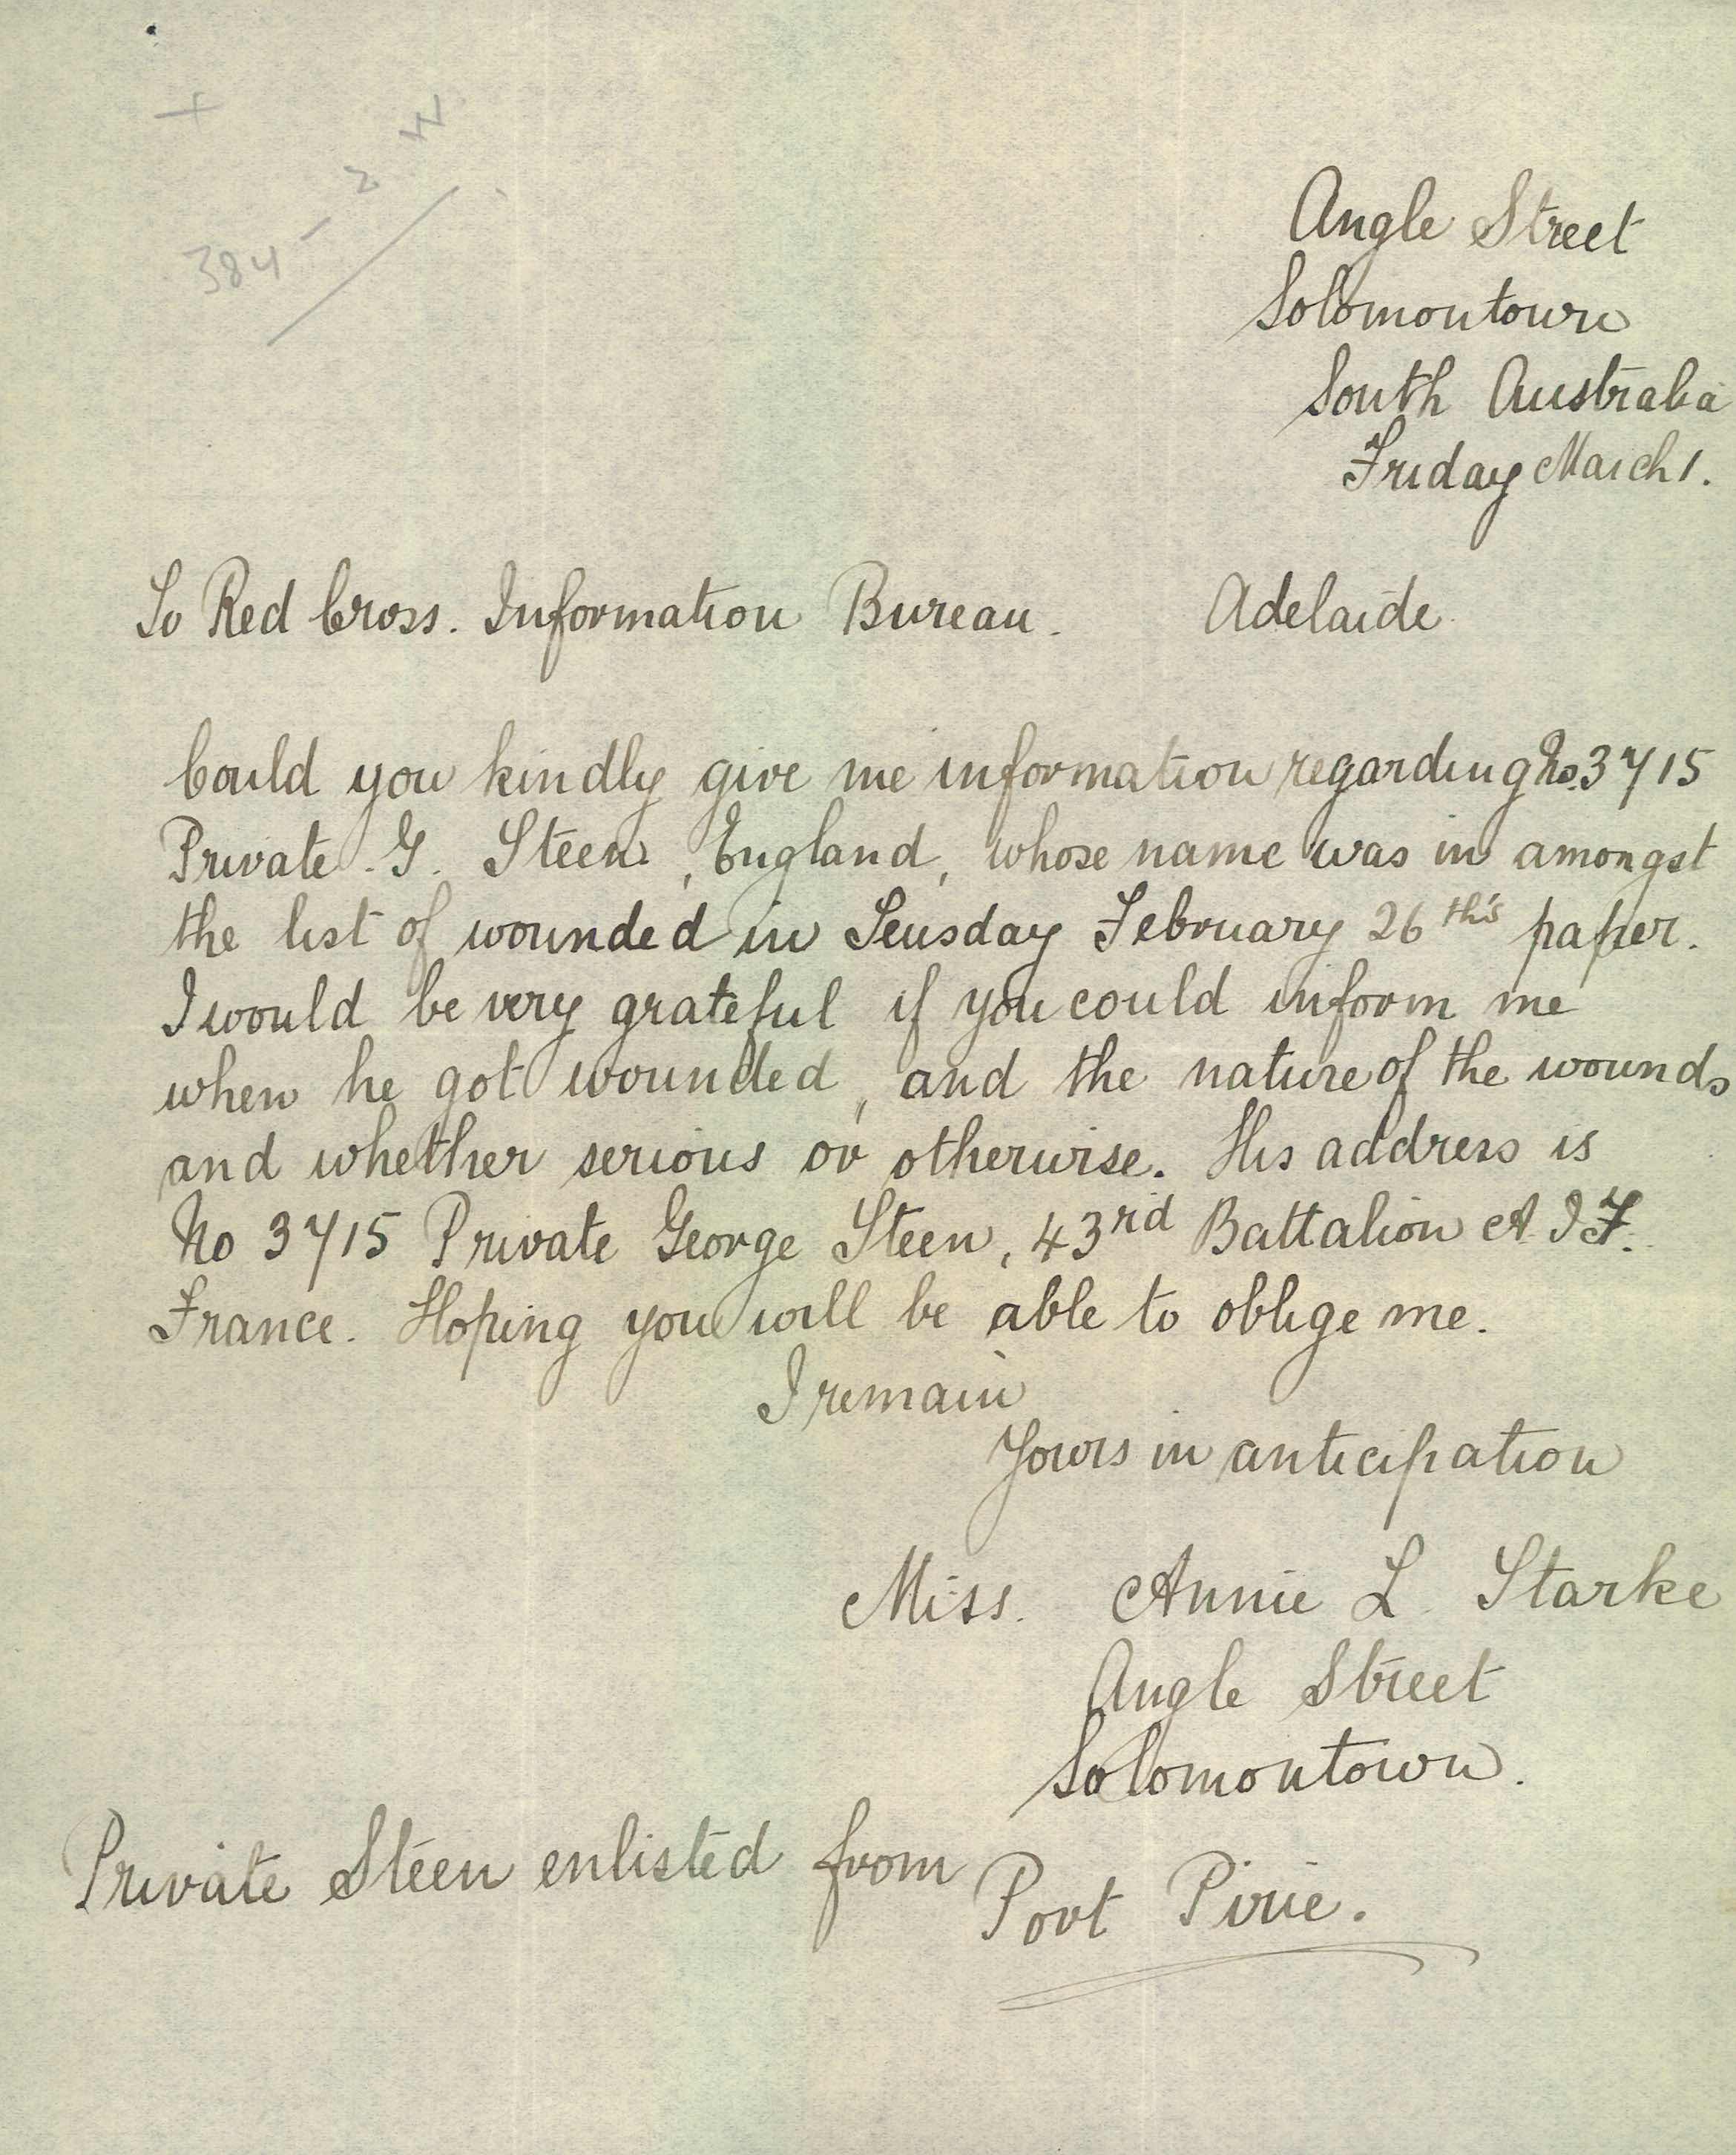 Angle Street
Solomontown
South Australia
Friday March 1.
To Red Cross. Information Bureau. Adelaide
Could you kindly give me information regarding No. 3715
Private G. Steen, England, whose name was in amongst
the list of wounded in Teusday February 26th's paper.
I would be very grateful if you could inform me
when he got wounded, and the nature of the wounds
and whether serious or otherwise. His address is
No 3715 Private George Steen, 43rd Battalion A.I.F.
France. Hoping you will be able to oblige me.
I remain
Yours in anticipation
Miss. Annie L. Starke
Angle Street
Solomontown.
Private Steen enlisted from Port Pirie.